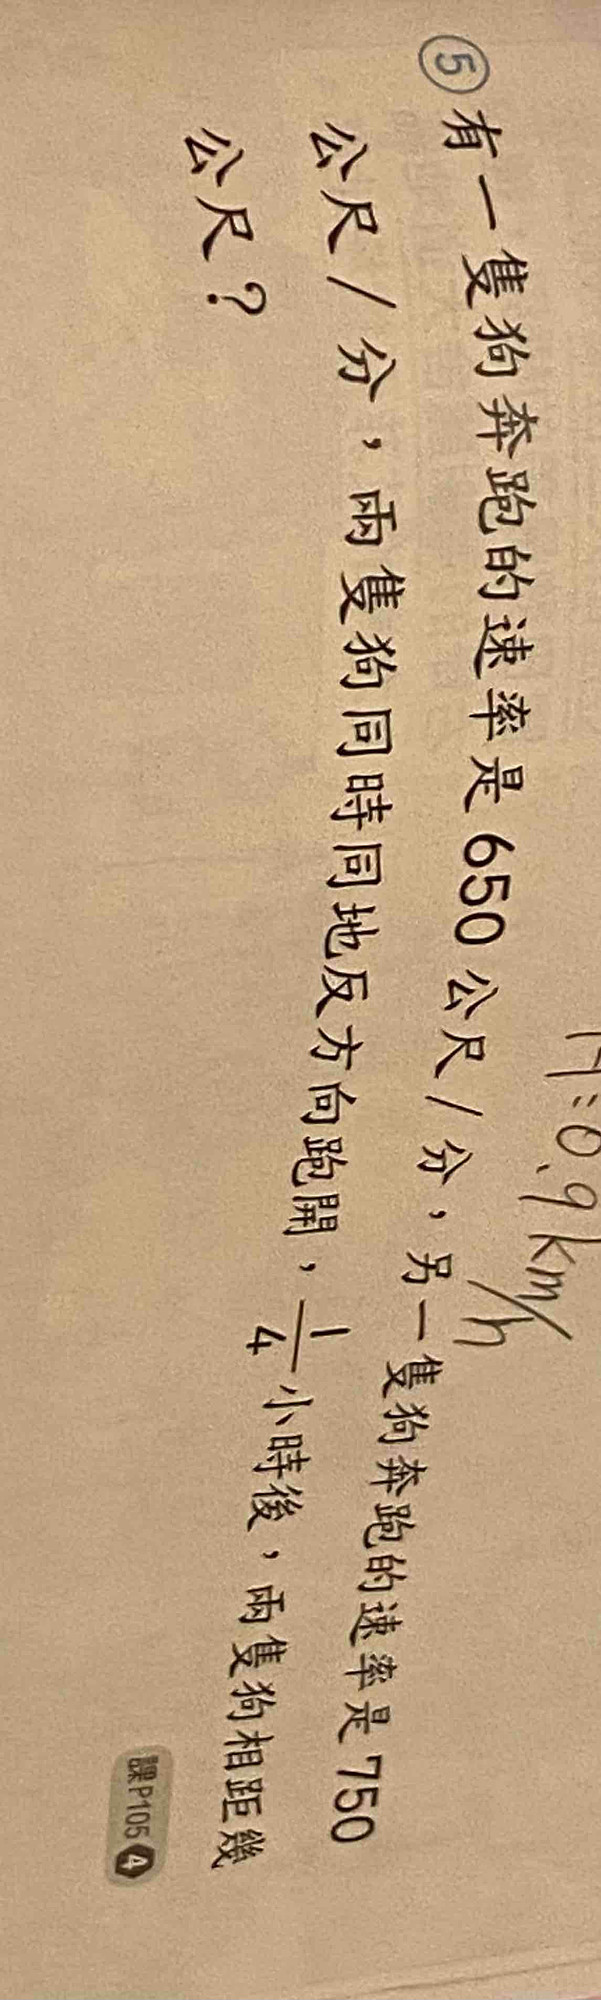 17:0.9km/h
⑤有一隻狗奔跑的速率是650公尺/分，另一隻狗奔跑的速率是750
公尺/分，兩隻狗同時同地反方向跑開，1/4小時後，兩隻狗相距幾
公尺？
課P105 4